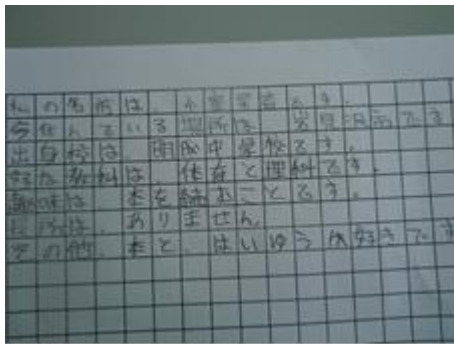 私の名前は、です。
今住んでいる場所は、岩見沢市です
出身校は、中学校です。
好な教科は、体育と理科です。
趣味は、本を読むことです。
所は、ありません。
その他、本と、はいゆうが好きです